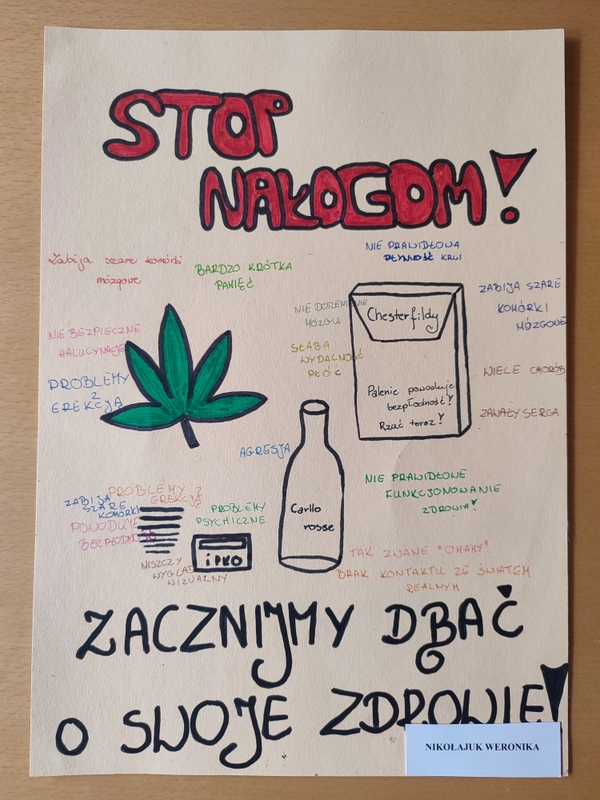 STOP
NAŁOGOM!
Zabija szare komórki
mózgowe
BARDZO KRÓTKA
PAMIĘĆ
NIE PRAWIDŁOWA
PŁYNOŚĆ KRWI
NIE BEZPIECZNE
HALUCYNACJE
PROBLEMY
Z
EREKCJĄ
NIE DOTLENIENIE
MÓZGU
SŁABA
WYDALNOŚĆ
PŁUC
Chesterfildy
Palenie powoduje
bezpłodność!
Rzuć teraz!
ZABIJA SZARE
KOMÓRKI
MÓZGOWE
WIELE CHORÓB
ZAWAŁY SERCA
AGRESJA
Carllo
rosse
PROBLEMY Z
EREKCJĄ
ZABIJA
SZARE
KOMÓRKI
POWODUJE
BEZPŁODNOŚĆ
PROBLEMY
PSYCHICZNE
NISZCZY
WYGLĄD
WIZUARNY
iPKO
NIE PRAWIDŁOWE
FUNKCJONOWANIE
ZDROWIA!
TAK ZWANE "OMAMY"
BRAK KONTAKTU ZE ŚWIATEM
REALNYM
ZACZNIJMY DBAĆ
O SWOJE ZDROWIE!
NIKOŁAJUK WERONIKA